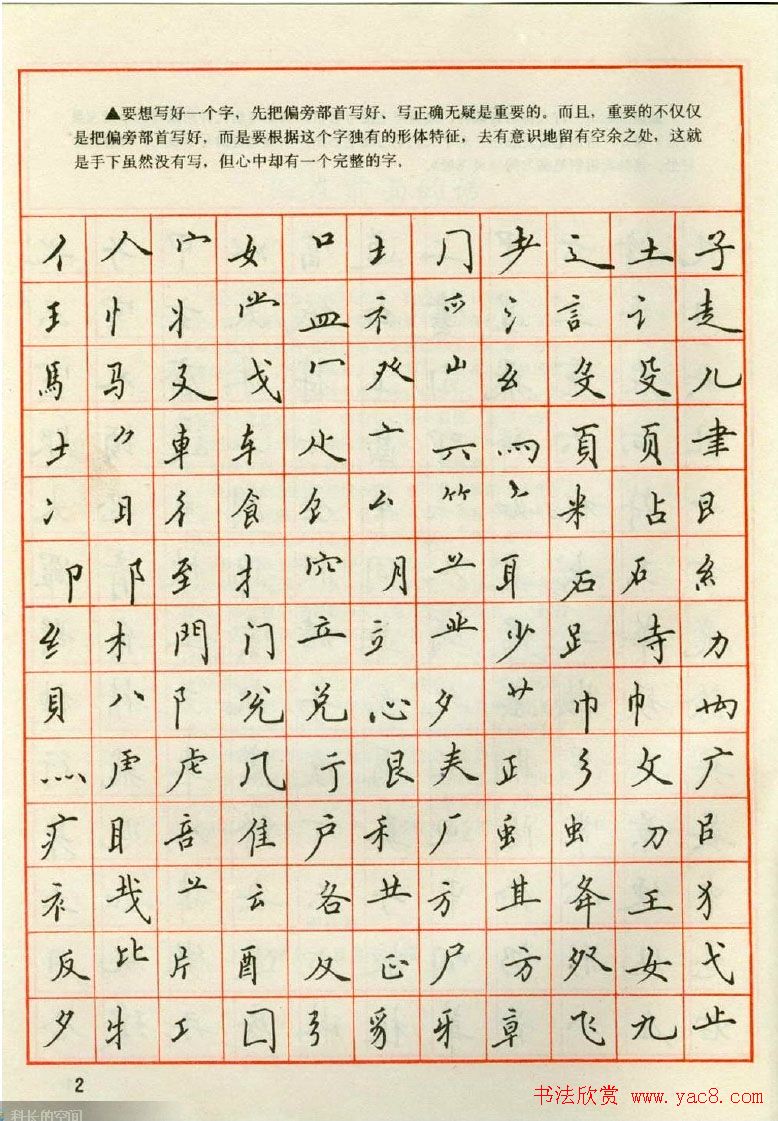 ▲要想写好一个字，先把偏旁部首写好、写正确无疑是重要的。而且，重要的不仅仅
是把偏旁部首写好，而是要根据这个字独有的形体特征，去有意识地留有空余之处，这就
是手下虽然没有写，但心中却有一个完整的字。
亻 人 宀 女 口 土 冂 耂 辶 土 子
王 忄 丬 龸 皿 礻 爫 氵 言 讠 走
馬 马 廴 戈 冖 癶 山 幺 殳 殳 儿
士 車 车 亠 六 罒 頁 页 聿
冫 日 彳 食 飠 厶 竹 米 占 日
卩 阝 至 扌 穴 月 䒑 耳 石 石 糹
纟 木 門 门 立 立 业 少 𧾷 寺 力
貝 八 阝 兑 兑 心 夕 艹 巾 巾
灬 虍 虍 几 彳 艮 夫 正 彡 文 广
疒 目 音 隹 户 禾 厂 虫 虫 刀 吕
衤 䒑 云 各 龷 方 其 夅 王 犭
反 比 片 酉 及 正 尸 方 女 弋
夕 牛 工 囗 弓 豸 牙 章 飞 九 止
2
书法欣赏 www.yac8.com
科长的空间